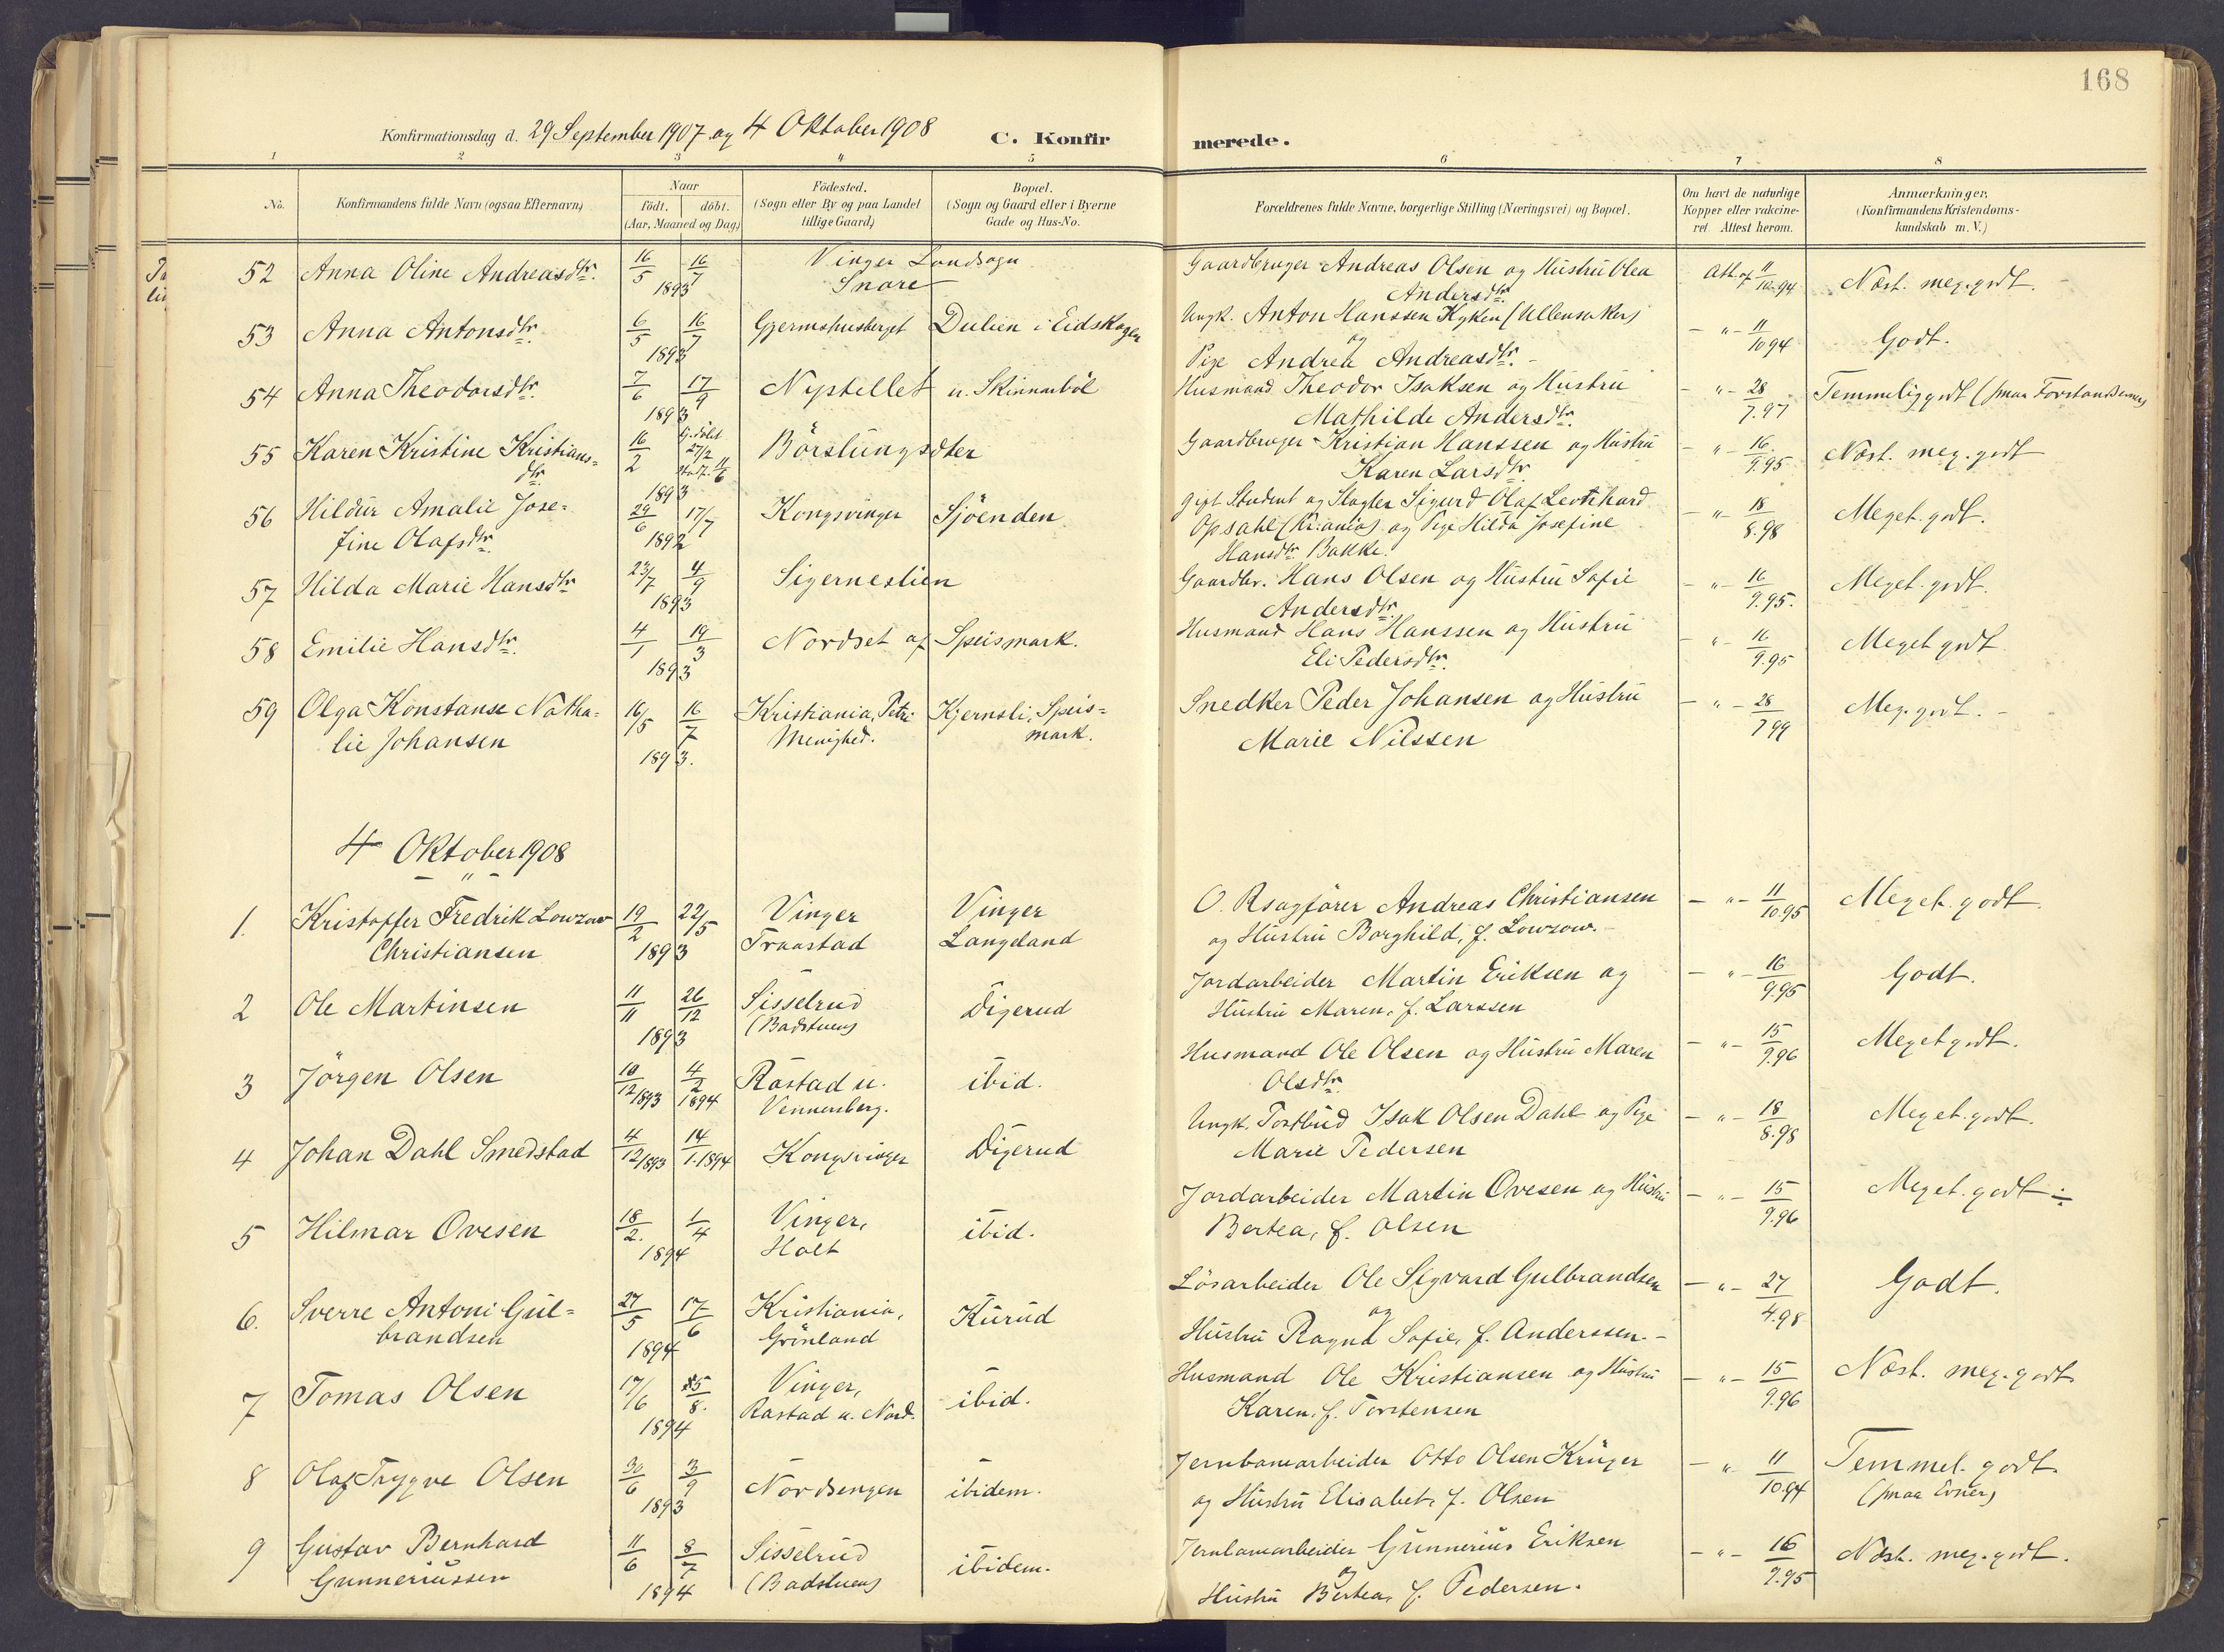 168
Konfirmationsdag d. 29 September 1907 og 4 Oktober 1908 C. Konfirmerede.
1 2 3 4 5 6 7 8
No. Konfirmandens fulde Navn (ogsaa Efternavn) Naar födt. döbt. (Aar, Maaned og Dag) Födested. (Sogn eller By og paa Landet tillige Gaard) Bopæl. (Sogn og Gaard eller i Byerne Gade og Hus-No. Forældrenes fulde Navne, borgerlige Stilling (Næringsvei) og Bopæl. Om havt de naturlige Kopper eller vakcineret. Attest herom. Anmærkninger. (Konfirmandens Kristendomskundskab m. V.)
52 Anna Oline Andreasdtr. 16/5 16/7 1893 Vinger Landsogn Snare Gaardbruger Andreas Olsen og Hustru Olea Andersdtr. Att. af 11/10.94 Næst. meg. godt.
53 Anna Antonsdtr. 6/5 16/7 1893 Gjermshusberget Dulien i Eidskogen Ungk. Anton Hanssen Kyken (Ullensaker) og Pige Andrea Andreasdtr. - " - 11/10 94 Godt.
54 Anna Theodorsdtr. 7/6 17/9 1893 Nystillet u. Skinnarböl Husmand Theodor Isaksen og Hustru Mathilde Andersdtr. - " - 28/7.97 Temmelig godt (smaa Forstandsevner)
55 Karen Kristine Kristiansdtr. 16/2 Hj. döbt 27/2 11/6 1893 Börslungsæter Gaardbruger Kristian Hanssen og Hustru Karen Larsdtr. - " - 16/9.95 Næst. meg. godt
56 Hildur Amalie Josefine Olafsdtr. 29/6 17/7 1892 Kongsvinger Sjöenden gigt Student og Slagter Sigurd Olaf Leonhard Opsahl (Kr:ania) og Pige Hilda Josefine Hansdtr. Bakke. - " - 18/8.98 Meget godt.
57 Hilda Marie Hansdtr 23/7 4/9 1893 Sigerneslien Gaardbr. Hans Olsen og Hustru Sofie Andersdtr. - " - 16/9.95. Meget godt.
58 Emilie Hansdtr. 4/1 19/3 1893 Nordset af Speismark. Husmand Hans Hanssen og Hustru Eli Pedersdtr. - " - 16/9.95 Meget godt
59 Olga Konstanse Nathalie Johansen 16/5 16/7 1893. Kristiania, Petri Menighed. Kjernsli, Speismark. Snedker Peder Johansen og Hustru Marie Nilssen - " - 28/7 99 Meg. godt. -
4 Oktober 1908
- " -
1. Kristoffer Fredrik Lowzow Christiansen 19/2 22/5 1893 Vinger Traastad Vinger Langeland O. Rsagförer Andreas Christiansen og Hustru Borghild, f. Lowzow. - " - 11/10.95 Meget godt.
2 Ole Martinsen 11/11 26/12 1893 Sisselrud (Badstuen) Digerud Jordarbeider Martin Eriksen og Hustru Maren, f. Larssen - " - 16/9.95 Godt.
3 Jörgen Olsen 10/12 1893 4/2 1894 Rastad u. Vennersberg. ibid. Husmand Ole Olsen og Hustru Maren Olsdtr. - " - 15/9.96 Meget godt.
4 Johan Dahl Smedstad 4/12 1893 14/1.1894 Kongsvinger Digerud Ungk. Postbud Isak Olsen Dahl og Pige Marie Pedersen - " - 18/8.98 Meget godt.
5 Hilmar Ovesen 18/2. 1/4 1894 Vinger, Holt ibid. Jordarbeider Martin Ovesen og Hustru Bertea, f. Olsen - " - 15/9.96 Meget godt ÷
6. Sverre Antoni Gulbrandsen 27/5 17/6 1894 Kristiania, Grönland Kurud Lösarbeider Ole Sigvard Gulbrandsen og Hustru Ragna Sofie, f. Anderssen. - - " - 27/4.98 Godt.
7 Tomas Olsen 17/6 5/8. 1894 Vinger, Rastad u. Nord. ibid. Husmand Ole Kristiansen og Hustru Karen, f. Torstensen - " - 15/9.96 Næst. meg. godt
8 Olaf Trygve Olsen 30/6 3/9 1893 Nordsengen ibidem. Jernbanearbeider Otto Olsen Krüger og Hustru Elisabet, f. Olsen - " - 11/10.94 Temmel. godt. (smaa Evner)
9 Gustav Bernhard Gunneriussen 11/6 8/7 1894 Sisselrud (Badstuen) ibidem. Jernbanearbeider Gunnerius Eriksen og Hustru Bertea, f. Pedersen. - " - 16/9.95 Næst. meg. godt.